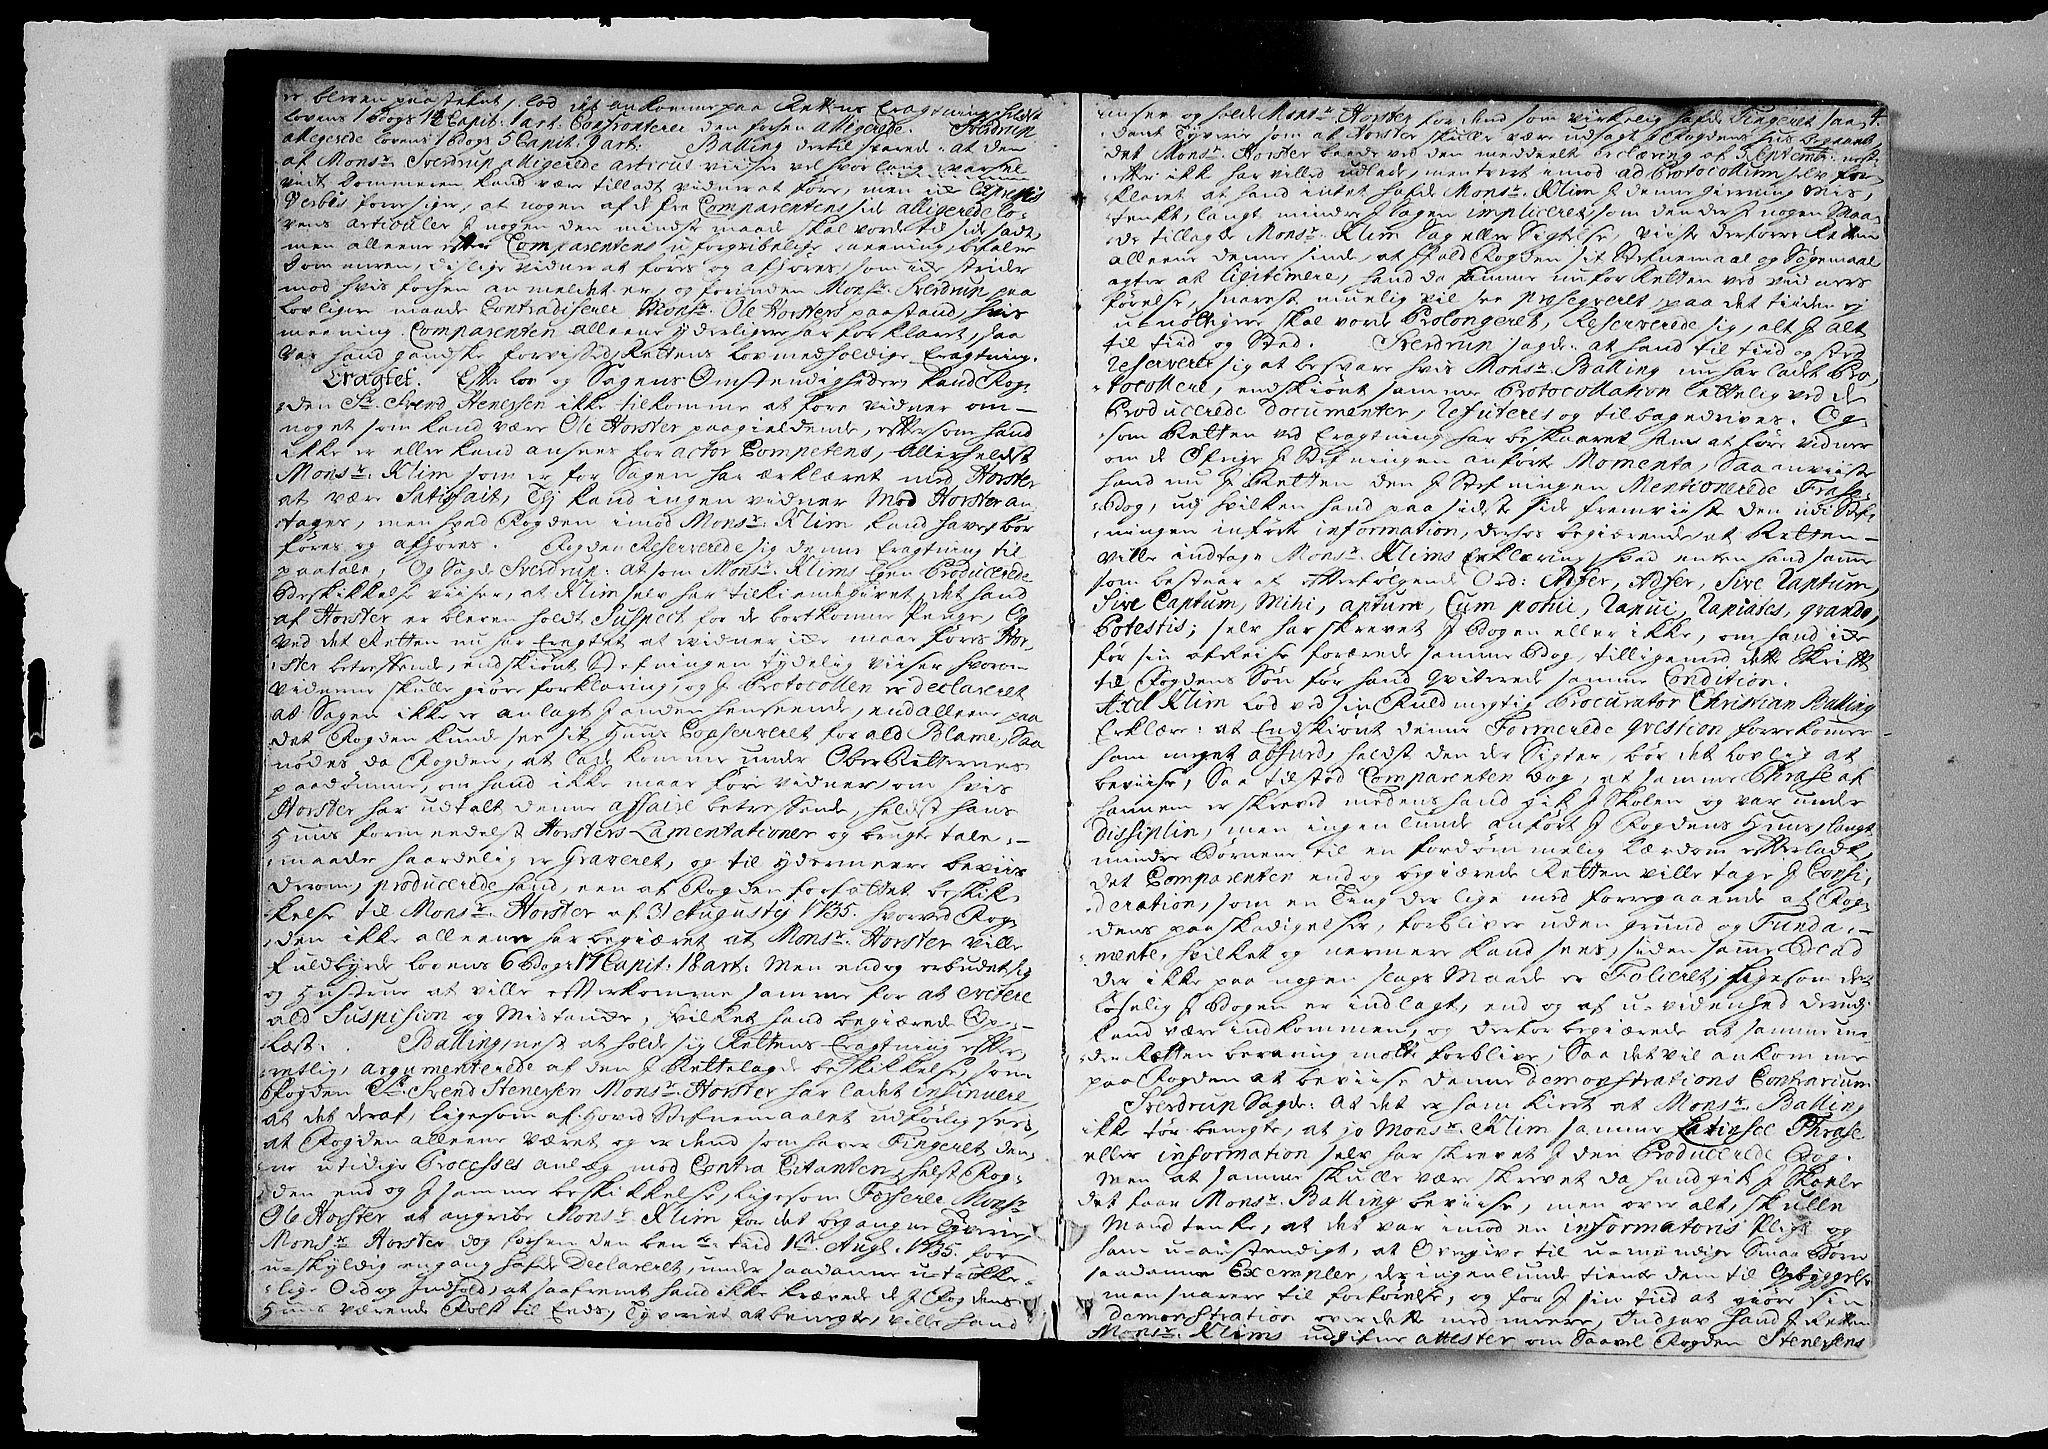 er bleven paastefnt, lod det ankomme paa Rettens Eragtning, heldst
Lovens 1 Bogs 14 Capit: 1 art: Confronterer den forhen alligerede. Sverdrup
alligerede Lovens 1 Bogs 5 Capit: 9 art: Balling dertil svared: at den
af Monsr. Sverdrup alligerede articul viiser vel hvor lang varsel
vidt Dommeren kand være tilladt vidner at føre, men icke Expressis
Verbis foresiger, at nogen af de fra Comparentens side alligerede Lo-
vens articuler i nogen den mindste maade skal vorde til side sadt,
men alleene efter Comparentens uforgribelige meening, befaler
Dommeren, deslige vidner at føres og afhøres, som icke strider
mod hvis forhen anmeldet er, og forinden Monsr. Sverdrup paa
lovligere maade Contradiserer Monsr. Ole Horsters paastand, hvis
meening Comparenten alleene yderligere har forklaret, saa
var hand gandske forvissed Rettens lovmedholdige Eragtning.
Eragtet. Efter Lov og Sagens Omstendigheder kand Fog-
den Sr. Svend Stenersen ikke tilkomme at føre vidner om
noget som kand være Ole Horster paagieldende, eftersom hand
ikke er eller kand ansees for actor Competens, allerheldst
Monsr. Klim som er for Sagen har ærklæret med Horster
at være Satisfait, Thj kand ingen vidner mod Horster an-
tages, men hvad Fogden imod Monsr. Klim kand have bør
føres og afhøres. Fogden Reserverede sig denne Eragtning til
paatale, Og Sagde Sverdrup: at som Monsr. Klims egen Producerede
Beskikkelse viiser, at Klim selv har tilkiendegivet, det hand
af Horster er bleven holdt Suspect for de bortkomne Penge, Og
ved det Retten nu har Eragtet at vidner icke maae føres Hor-
ster betreffende, endskiønt Stefningen tydelig viiser hvorom
vidnerne skulle giøre forklaring, og i Protocollen er declareret
at Sagen ikke er anlagt i anden henseende, end alleene paa
det Fogden kunde see sit Huus Conserveret for ald Blame, Saa
nødes da Fogden, at lade komme under OberRetternes
paadømme, om hand ikke maae føre vidner, om hvis
Horster har udtalt denne affaire betreffende, heldst hans
Huus formedelst Horsters Lamentationer og brugte tale-
maader haardelig er Graveret, og til ydermeere beviis
derom, producerede hand, een af Fogden forfattet beskik-
kelse til Monsr. Horster af 31 Augustij 1735. hvorved Fog-
den ikke alleene har begiæret at Monsr. Horster ville
fuldbyrde Lovens 6 Bogs 17 Capit: 18 art: Men endog erbudet sig
og Hustrue at ville efterkomme samme for at evitere
ald Suspision og Mistanke, hvilket hand begiærede Op-
læst. Balling, nest at holde sig Rettens Eragtning efter-
retlig, argumenterede af den i Rettelagde beskikkelse, som
Fogden Sr. Svend Stenersen Monsr. Horster har ladet insinuere,
at det deraf, ligesom af Hoved Stefnemaalet udførlig sees,
at Fogden alleene været og er dend som haver Fingeret den-
ne utidige Processes anlæg mod Contra Citanten, helst Fog-
den end og i samme beskikkelse, ligesom Forserer Monsr.
Ole Horster at angribe Monsr. Klim for det begangne Tyverie,
Monsr. Horster dog forhen den bende tiid 1ste Augl. 1735. for
uskyldig engang hafde Declareret, under saadanne utække-
lige Ord og Indhold, at saafremt hand ikke krævede de i Fogdens
Huus værende Folk til Eeds, Tyveriet at benegte, ville hand
4.
ansee og holde Monsr. Horster for dend som virkelig hafde Fingeret saa-
dant Tyverie som af Horster skulle være udsagt i Fogdens Huus begaaet,
det Monsr. Horster baade ved den meddeelte erclæring af Septembr: nest-
efter ikke har villed udlade, men tvert imod ad Protocollum selv for-
klaret at hand intet hafde Monsr. Klim i denne Gierning mis-
tenkt, langt mindre i Sagen impliceret, som den der i nogen Maa-
de tillagde Monsr. Klim Sag eller Sigtelse, viiste derforre Retten
alleene denne sinde, at ifald Fogden sit Stefnemaal og Søgemaal
agter at ligitimere, hand da samme nu for Retten ved vidners
førelse, snarest muelig vil see Proseqveret, paa det tiiden ej
unøttigere skal vorde Prolongeret, Reserverede sig, alt i alt
til tiid og Sted. Sverdrup sagde: at hand til tiid og sted
reserverer sig at besvare hvis Monsr. Balling nu har ladet Pro-
tocollere, endskiønt samme Protocollation lettelig ved de
Producerede Documenter, refuteres og tilbagedrives. Og
som Retten ved Eragtning har beskaaret ham at føre vidner
om de Øfrige i Stefningen anførte Momenta, Saa anviiste
hand nu i Retten den i Stefningen Mentionerede Frase-
Bog, udj hvilken hand paa sidste side fremviiste den udi Stef-
ningen inført information, derhos begiærende at Retten
ville indtage Monsr. Klims Erklæring, hvad enten hand samme
som bestaar af efterfølgende Ord: Adfer, Adfer, Sive raptum,
Sive Captum, Mihi, aptum, Cum potui, rapui, rapiates, grando,
Potestis; selv har skrevet i Bogen eller ikke, om hand icke
før sin afreise forærede samme Bog, tilligemed dette Skrift
til Fogdens Søn før hand qviterede samme Condition.
Axel Klim lod ved sin Fuldmegtig Procurator Christian Balling
Erklære: at Endskiønt denne Formerede qvestion forrekommer
ham meget absurd, heldst den der Sigter, bør det lovlig at
beviise, Saa tilstod Comparenten dog, at samme Phrase af
hannem er skreved medens hand gik i Skolen og var under
dissiplin, men ingenlunde anført i Fogdens Huus, langt
mindre Børnene til en fordømmelig Lærdom efterladt,
det Comparenten end og begiærede Retten ville tage i Consi-
deration, som en Ting der lige med forregaaende af Fog-
dens paaskadigelser, forbliver uden grund og Funda-
mente, hvilket og nermere kand sees, siden samme Blad
der ikke paa nogen slags Maade er Folieret, ligesom det
løselig i Bogen er indlagt, end og af uvidenhed derudi
kand være indkommen, og derfor begiærede at samme un-
der Rettens bevaring motte forblive, Saa det vil ankomme
paa Fogden at beviise denne demonstrations Contrarium.
Sverdrup Sagde: At det er ham kiert at Monsr. Balling
ikke tør benegte, at jo Monsr. Klim samme Latinsee Phrase
eller information selv har skrevet i den Producerede Bog.
Men at samme skulle være skrevet da hand gik i Skoele
det faar Monsr. Balling beviise, men over alt, skulle
Mand tenke, at det var imod en informatoris Pligt og
ham uanstendigt, at Overgive til umyndige Smaa Børn
saadanne Exempler, der ingenlunde tiente dem til Opbyggelse
men snarere til forførelse, og for i sin tiid at giøre sin
demonstration over dette med meere, Indgav hand i Retten
Monsr. Klims udgifne attester om Saavel Fogden Stenersens